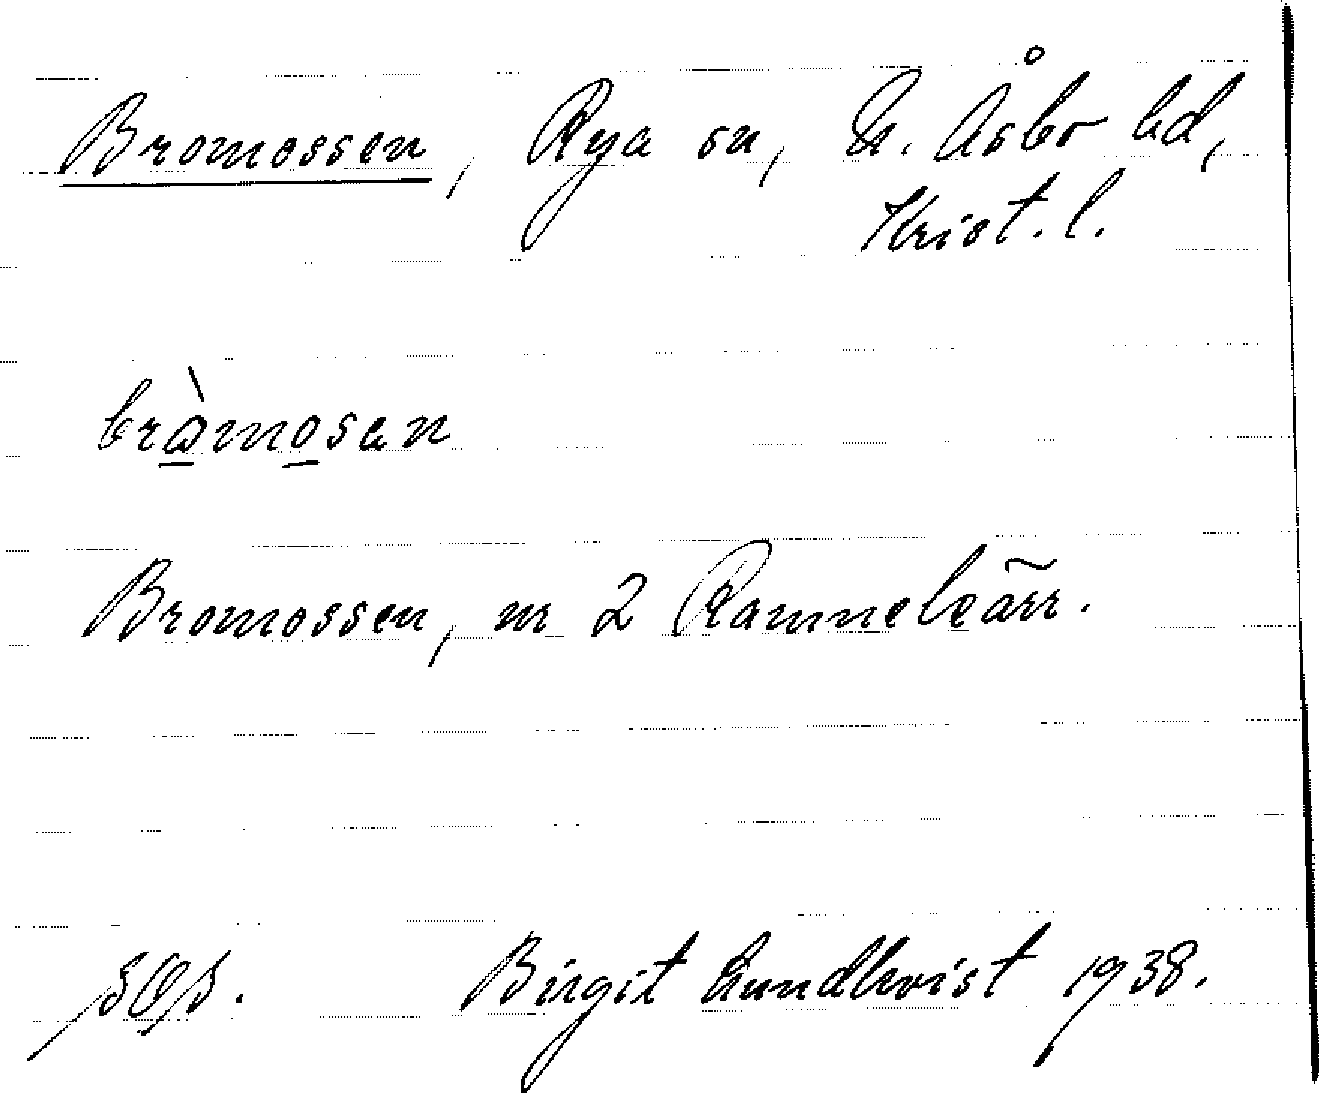 Bromossen, Rya sn, N. Åsbo hd,
Krist. l.
bròmosen
Bromossen, nr 2 Rammekärr.
Birgit Lundkvist 1938.